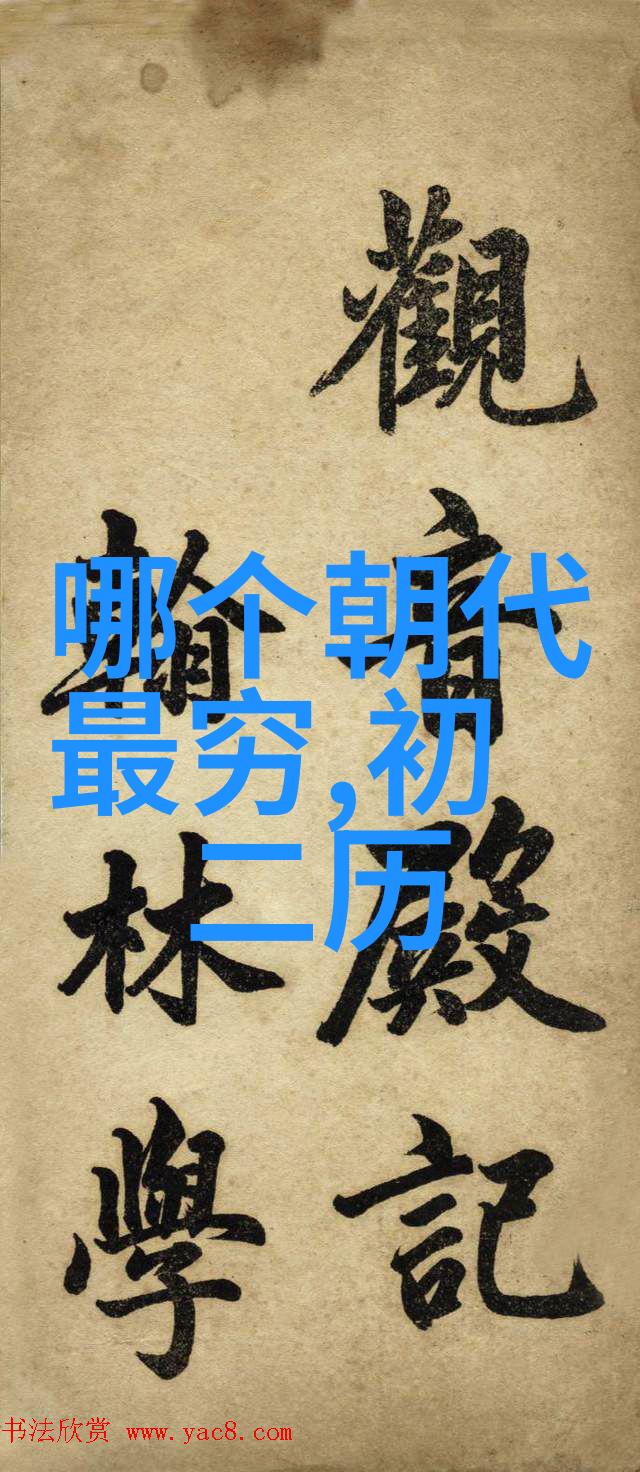 觀音殿記
翰林學
哪个朝代
最穷,初
二历
书法欣赏 www.yac8.com